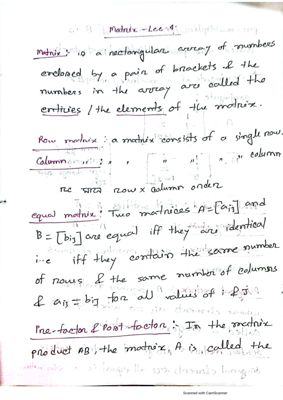 Matrix - Lec - 1
Matrix : is a rectangular array of numbers
enclosed by a pair of brackets & the
numbers in the array are called the
entries / the elements of the matrix.
Row matrix : a matrix consists of a single row.
Column " : " " " " " " column
row x column order
equal matrix : Two matrices A = [aij] and
B = [bij] are equal iff they are identical
i-e iff they contain the same number
of rows & the same number of columns
& aij = bij for all values of i & j.
Pre-factor & Post-factor : In the matrix
product AB, the matrix A is called the
Scanned with CamScanner